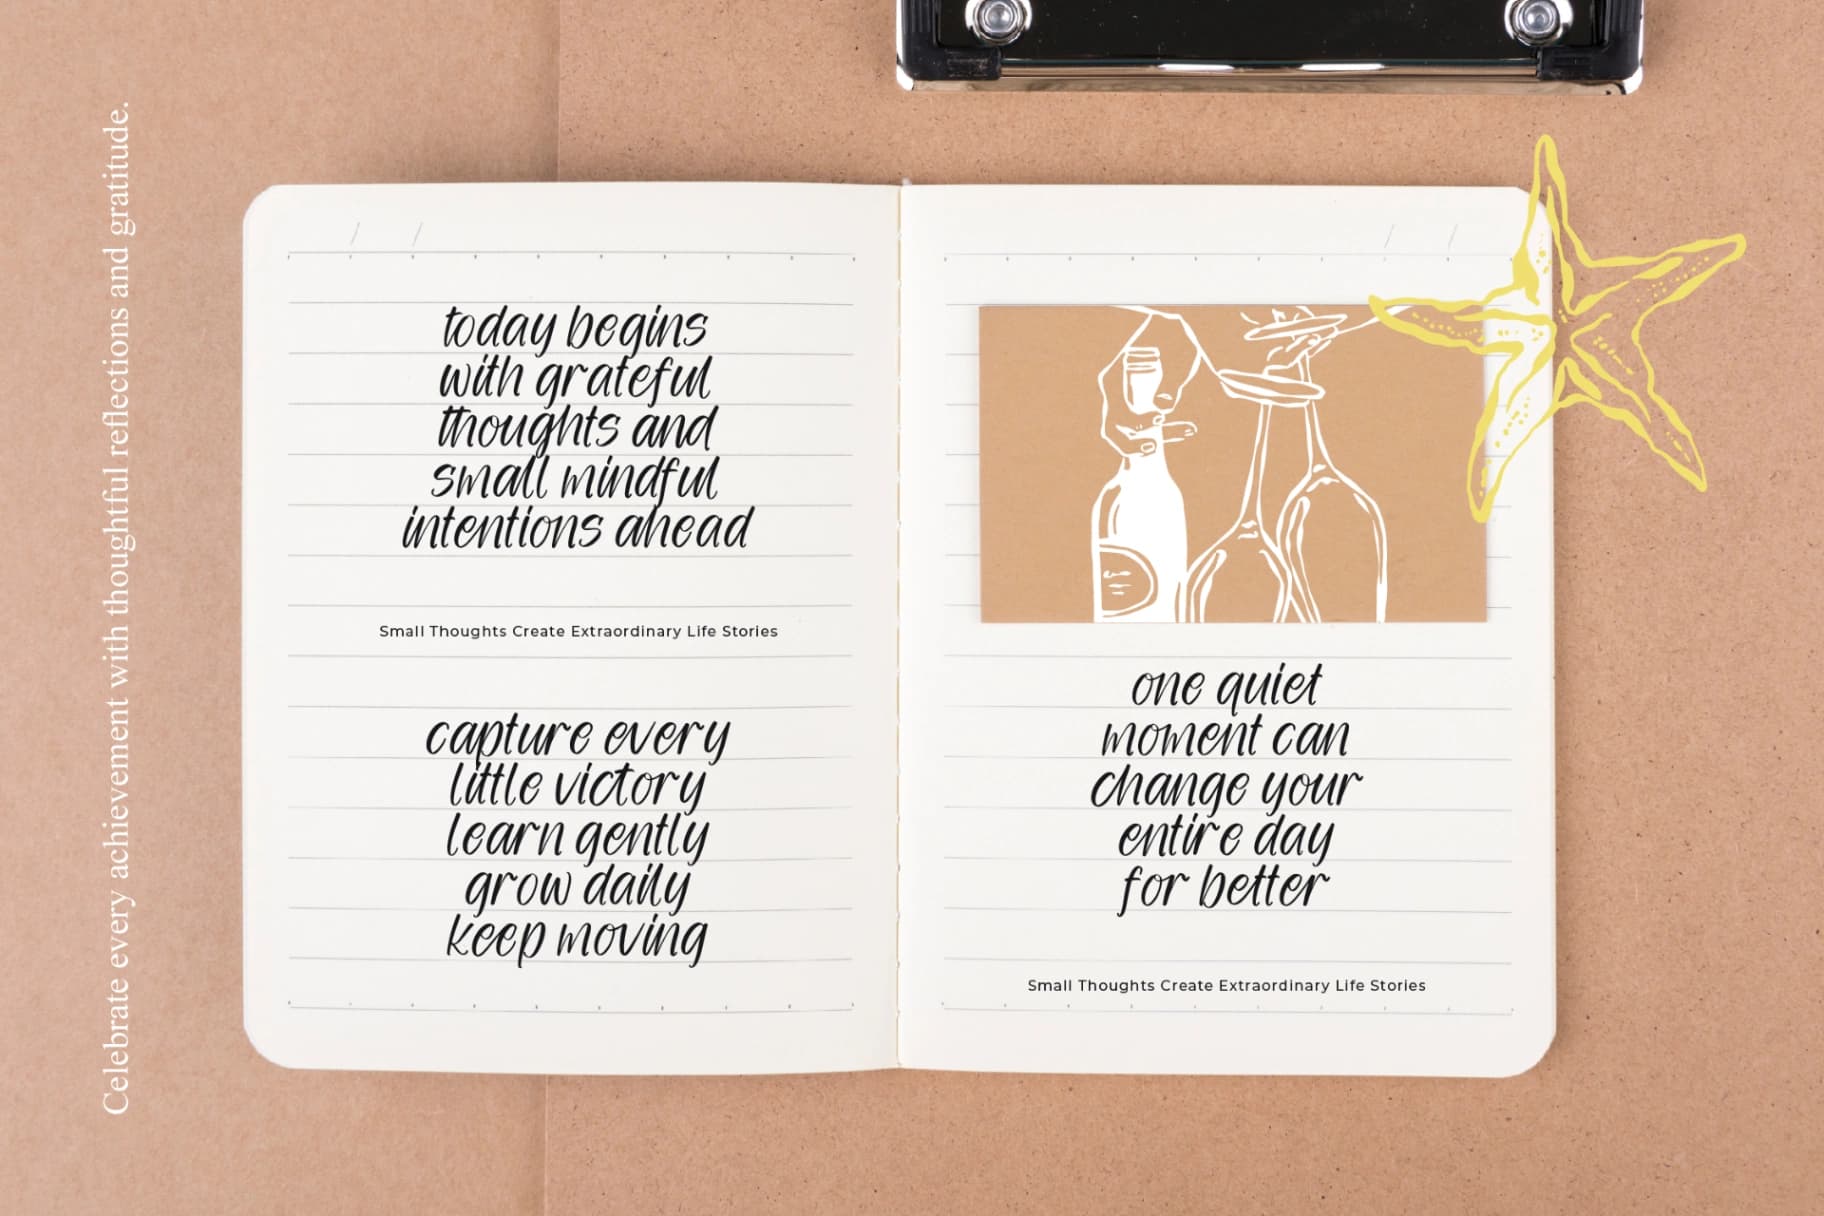 Celebrate every achievement with thoughtful reflections and gratitude.
today begins
with grateful
thoughts and
small mindful
intentions ahead
Small Thoughts Create Extraordinary Life Stories
capture every
little victory
learn gently
grow daily
keep moving
one quiet
moment can
change your
entire day
for better
Small Thoughts Create Extraordinary Life Stories